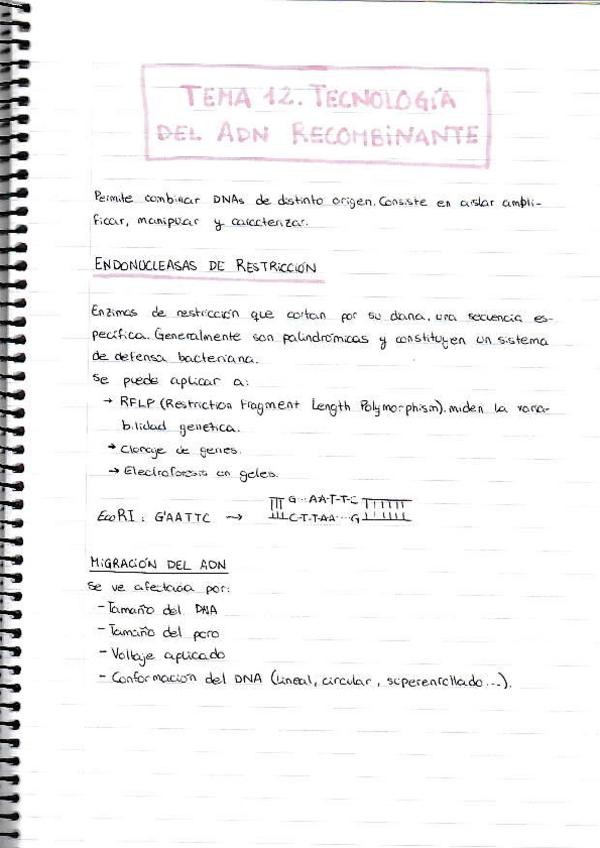 TEMA 12. TECNOLOGÍA
DEL ADN RECOMBINANTE
Permite combinar DNAs de distinto origen. Consiste en aislar ampli-
ficar, manipular y caracterizar.
ENDONUCLEASAS DE RESTRICCIÓN
Enzimas de restricción que cortan por su diana, una secuencia es-
pecífica. Generalmente son palindrómicas y constituyen un sistema
de defensa bacteriana.
Se puede aplicar a:
→ RFLP (Restriction Fragment Length Polymorphism). miden la varia-
bilidad genetica.
→ Clonaje de genes.
→ Electroforesis en geles.
EcoRI: G'AATTC → G···AA-T-T-C
C-T-T-AA···G
MIGRACIÓN DEL ADN
Se ve afectada por:
- Tamaño del DNA
- Tamaño del poro
- Voltaje aplicado
- Conformacion del DNA (lineal, circular, superenrollado...).